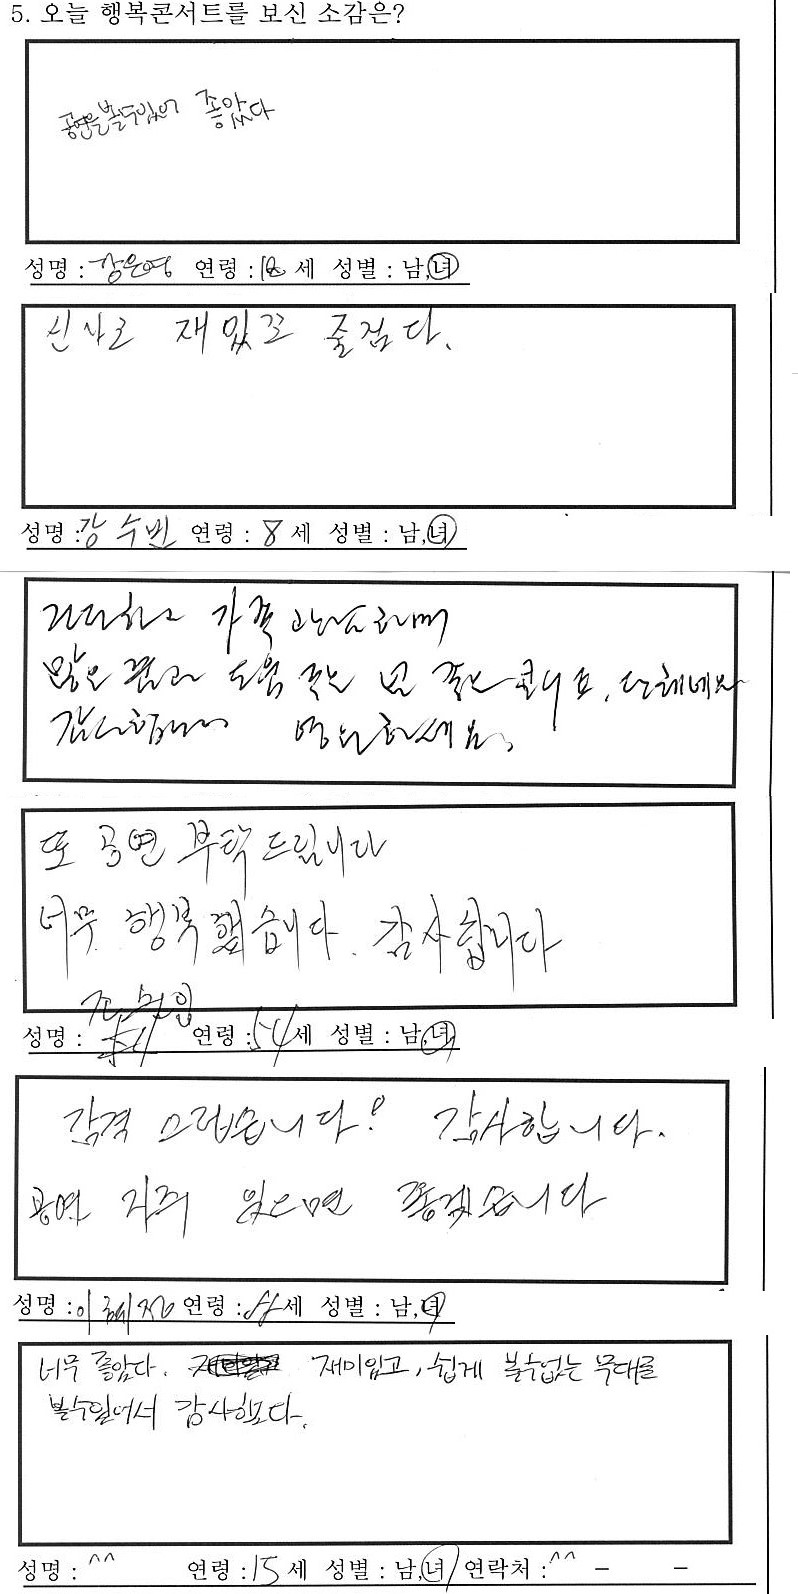 5. 오늘 행복콘서트를 보신 소감은?
공연을 볼수있어 좋았다
성명 : 강은영 연령 : 18 세 성별 : 남,녀
신사로 재밌꼬 줄겁다.
성명 : 강수빈 연령 : 8 세 성별 : 남,녀
가족
많은 도움 주는
감사합니다
또 공연 부탁드립니다
너무 행복했습니다. 감사합니다
성명 : 연령 : 54 세 성별 : 남,녀
감격스럽습니다! 감사합니다.
공연 자주 있으면 좋겠습니다
성명 : 이혜정 연령 : 세 성별 : 남,녀
너무 좋았다. 재미있고, 쉽게 볼수없는 무대를
볼수있어서 감사하다.
성명 : ^^ 연령 : 15 세 성별 : 남,녀 연락처 : ^^ - -